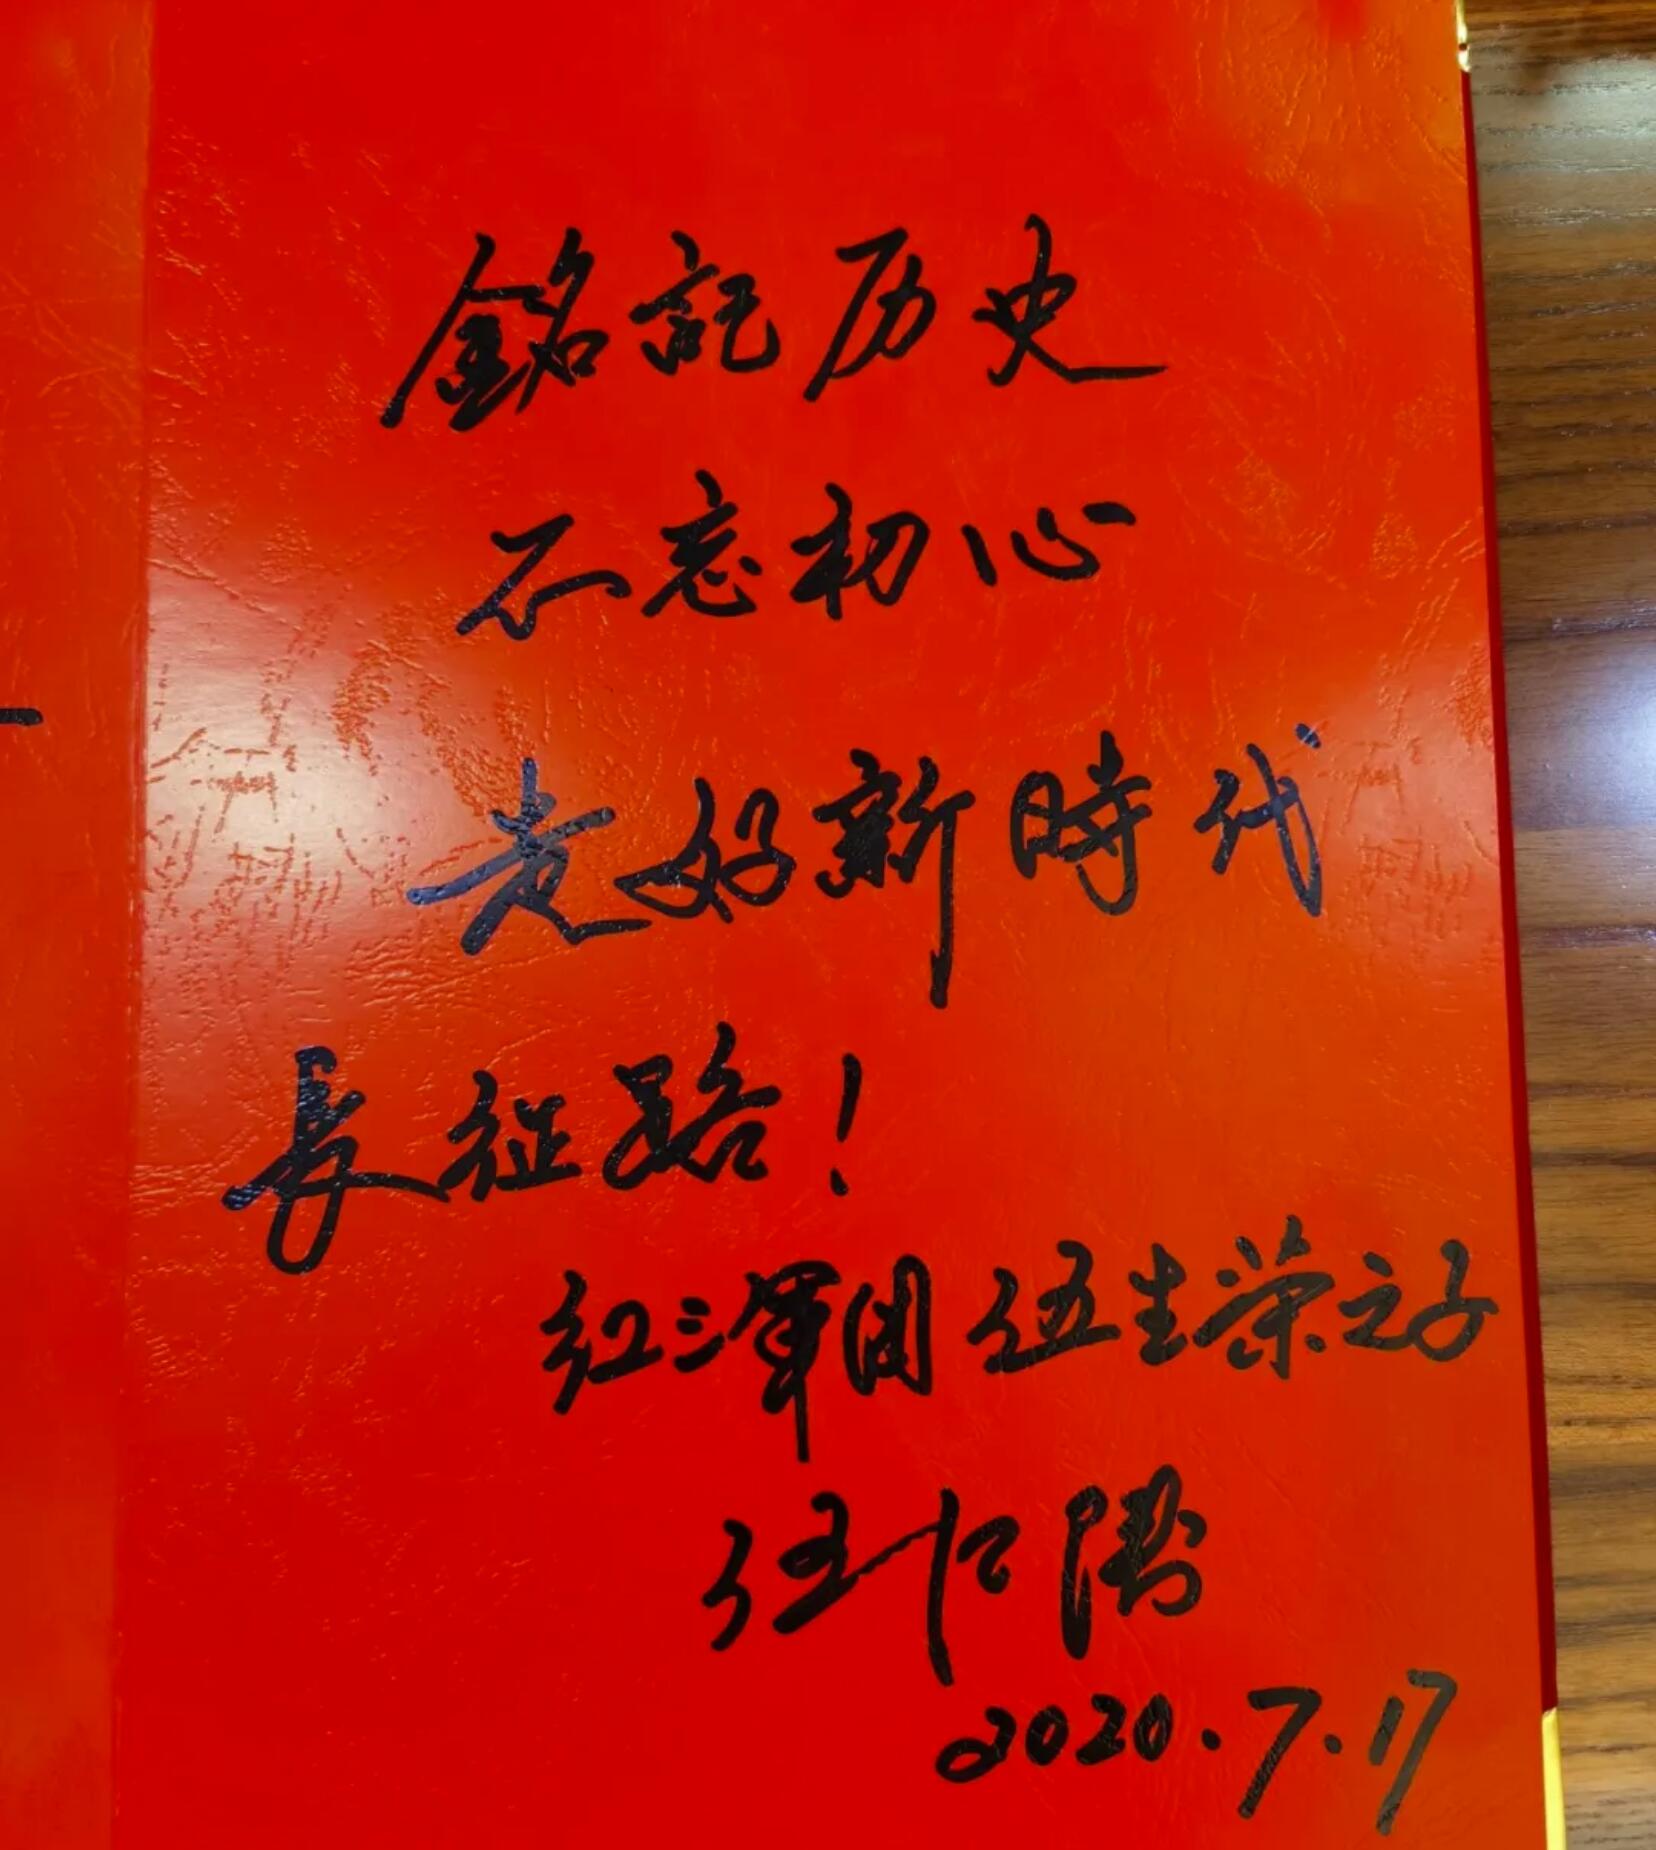 銘記历史
不忘初心
走好新時代
長征路！
红三軍团伍生荣之子
伍
2020.7.17